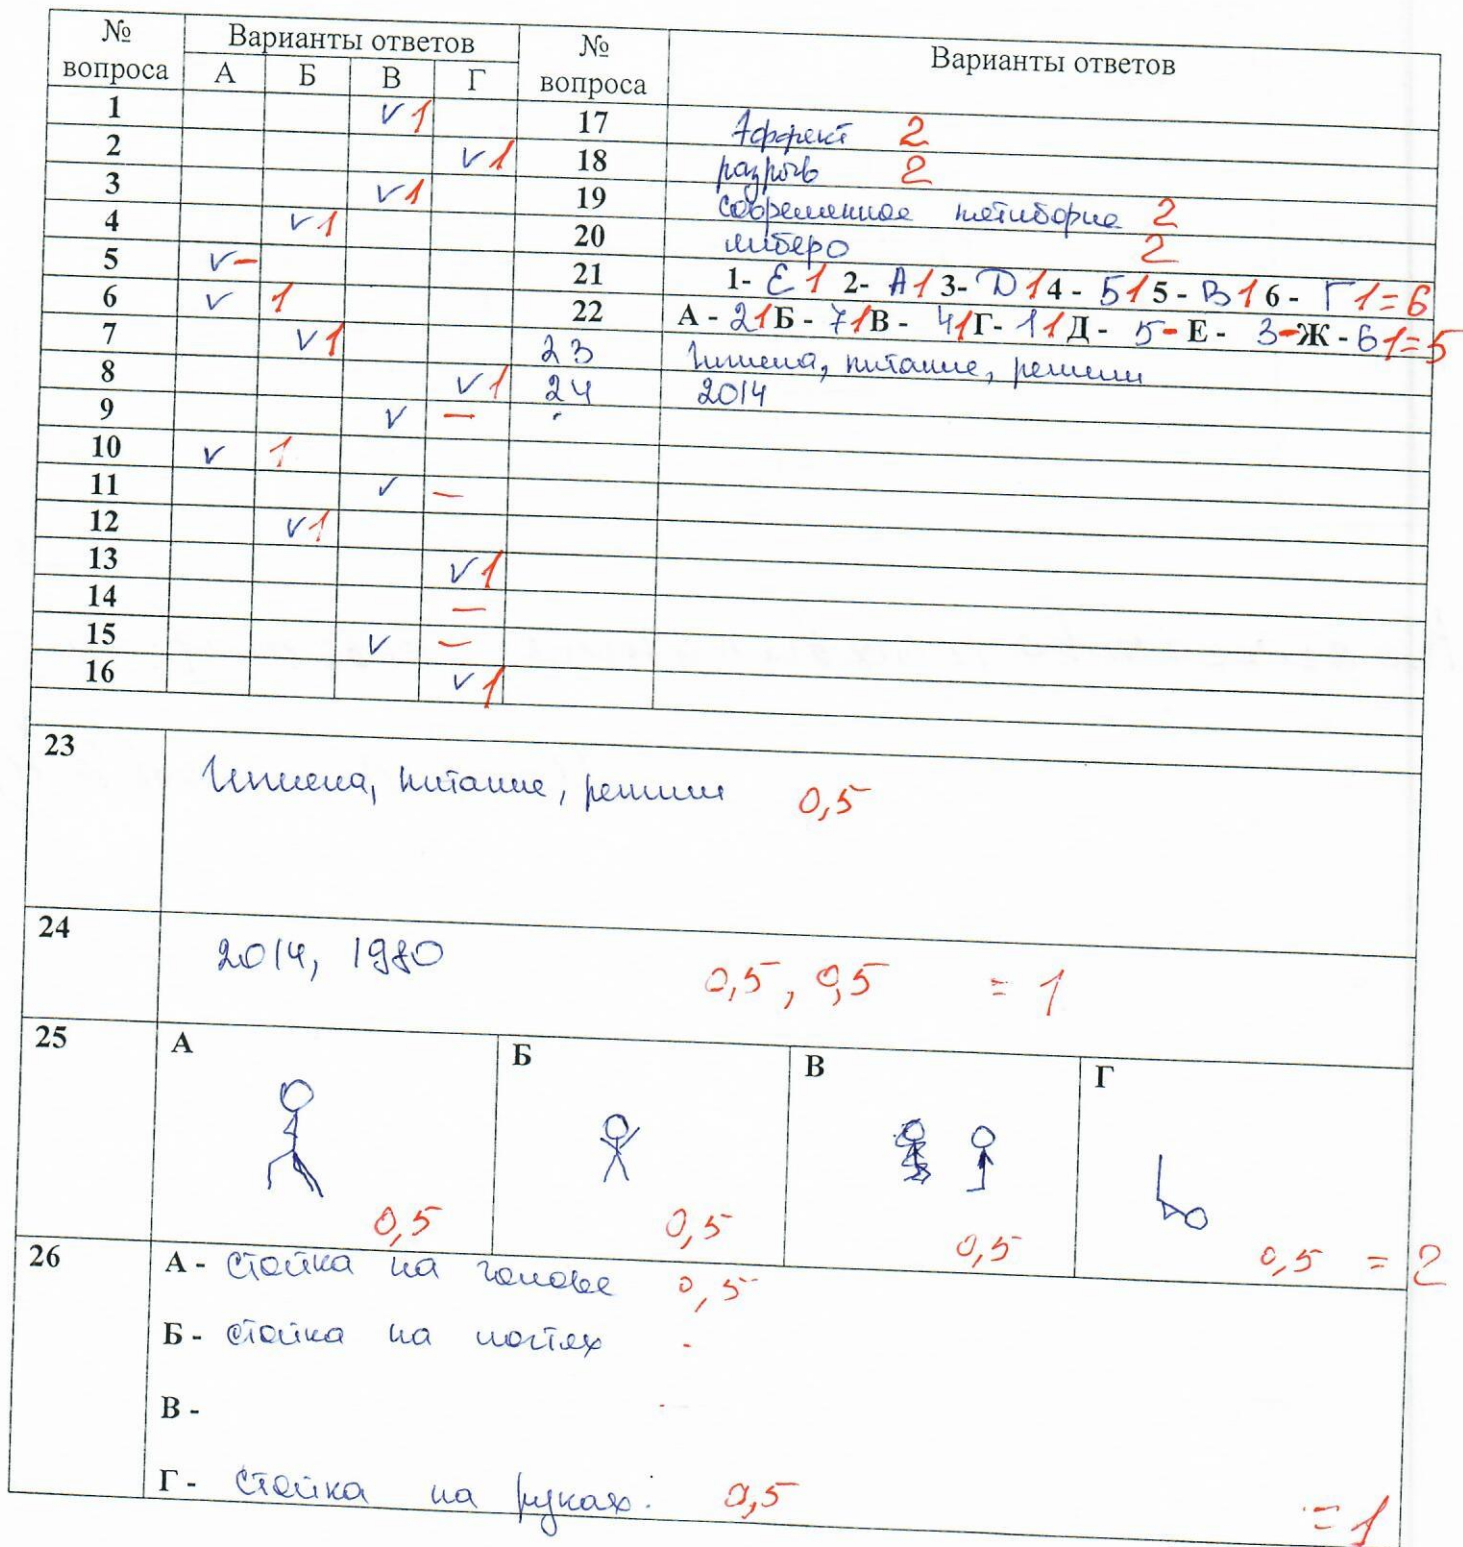 № вопроса Варианты ответов № вопроса Варианты ответов
А Б В Г
1 ✓ 1 17 Аффект 2
2 ✓ 1 18 разрыв 2
3 ✓ 1 19 современное пятиборье 2
4 ✓ 1 20 либеро 2
5 ✓ - 21 1- Е 1 2- А 1 3- D 1 4 - Б 1 5 - В 1 6 - Г 1 = 6
6 ✓ 1 22 А - 2 1 Б - 7 1 В - 4 1 Г- 1 1 Д - 5 - Е - 3 - Ж - 6 1 = 5
7 ✓ 1 23 Гигиена, питание, режим
8 ✓ 1 24 2014
9 ✓ -
10 ✓ 1
11 ✓ -
12 ✓ 1
13 ✓ 1
14 -
15 ✓ -
16 ✓ 1
23 Гигиена, питание, режим 0,5
24 2014, 1980 0,5, 0,5 = 1
25 А Б В Г
0,5 0,5 0,5 0,5 = 2
26 А - стойка на голове 0,5
Б - стойка на -
В - -
Г - стойка на руках. 0,5 = 1